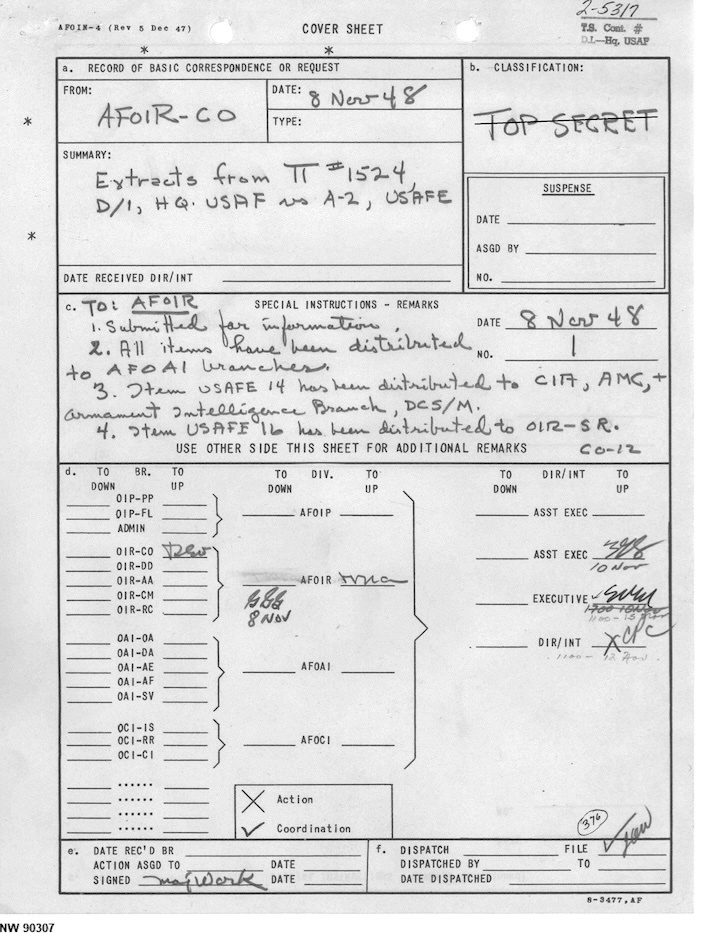 AFOIN-4 (Rev 5 Dec 47)
COVER SHEET
2-5317
T.S. Cont. #
D.I.—Hq, USAF
* *
a. RECORD OF BASIC CORRESPONDENCE OR REQUEST
b. CLASSIFICATION:
FROM:
AFOIR-CO
DATE: 8 Nov 48
TYPE:
TOP SECRET
*
SUMMARY:
Extracts from TT #1524,
D/I, HQ. USAF vs A-2, USAFE
*
DATE RECEIVED DIR/INT
SUSPENSE
DATE
ASGD BY
NO.
c. TO: AFOIR
SPECIAL INSTRUCTIONS - REMARKS
DATE 8 Nov 48
NO. 1
1. Submitted for information.
2. All items have been distributed
to AFOAI branches.
3. Item USAFE 14 has been distributed to CIA, AMC, +
Armament Intelligence Branch, DCS/M.
4. Item USAFE 16 has been distributed to OIR-SR.
USE OTHER SIDE THIS SHEET FOR ADDITIONAL REMARKS
CO-12
d. TO BR. TO TO DIV. TO TO DIR/INT TO
DOWN UP DOWN UP DOWN UP
OIP-PP
OIP-FL AFOIP ASST EXEC
ADMIN
OIR-CO ASST EXEC
10 Nov
OIR-DD
OIR-AA AFOIR
OIR-CM EXECUTIVE
OIR-RC
8 NOV
OAI-OA
OAI-DA DIR/INT
OAI-AE AFOAI
OAI-AF
OAI-SV
OCI-IS
OCI-RR AFOCI
OCI-CI
......
...... Action
......
...... Coordination
376
e. DATE REC'D BR
ACTION ASGD TO DATE
SIGNED Maj Work DATE
f. DISPATCH FILE
DISPATCHED BY TO
DATE DISPATCHED
8-3477,AF
NW 90307